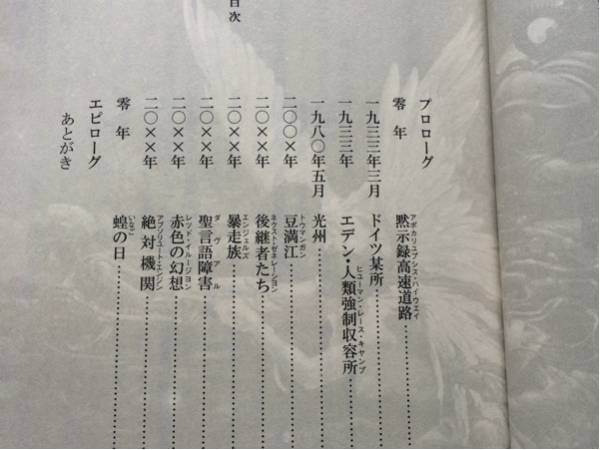 目次
プロローグ
零年 黙示録高速道路
アポカリュプシス・ハイウェイ
一九三三年三月 ドイツ某所
一九三三年 エデン・人類強制収容所
ヒューマン・レース・キャンプ
一九八〇年五月 光州
二〇〇×年 豆満江
トウマンガン
二〇××年 後継者たち
ネクスト・ゼネレーション
二〇××年 暴走族
エンジェルズ
二〇××年 聖言語障害
ダヴァル
二〇××年 赤色の幻想
レッド・イルージョン
二〇××年 絶対機関
アブソリュート・エンジン
零年 蝗の日
いなご
エピローグ
あとがき